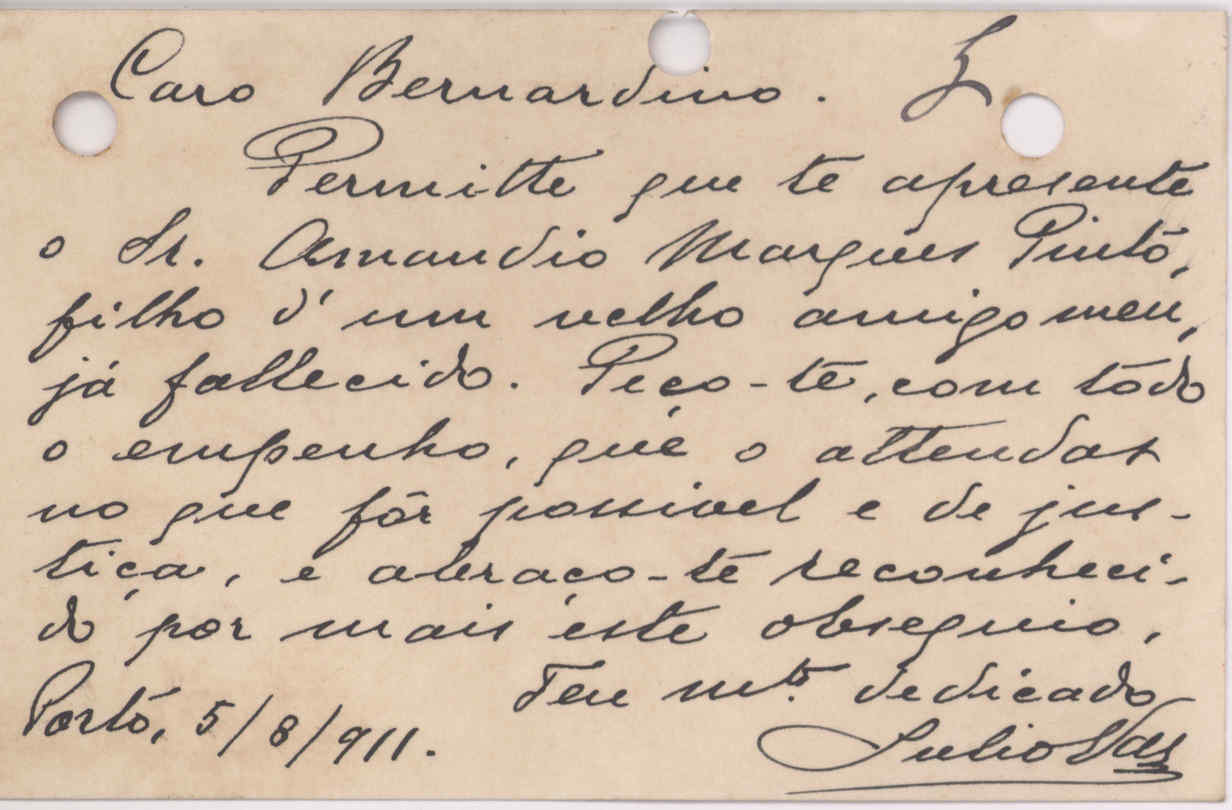 Caro Bernardino.
Permitte que te apresente
o Sr. Amandio Marques Pinto,
filho d'um velho amigo meu,
já fallecido. Peço-te, com todo
o empenho, que o attendas
no que fôr possivel e de jus-
tiça, e abraço-te reconheci-
do por mais este obsequio.
Teu mto. dedicado
Porto, 5/8/911.
Julio Vaz